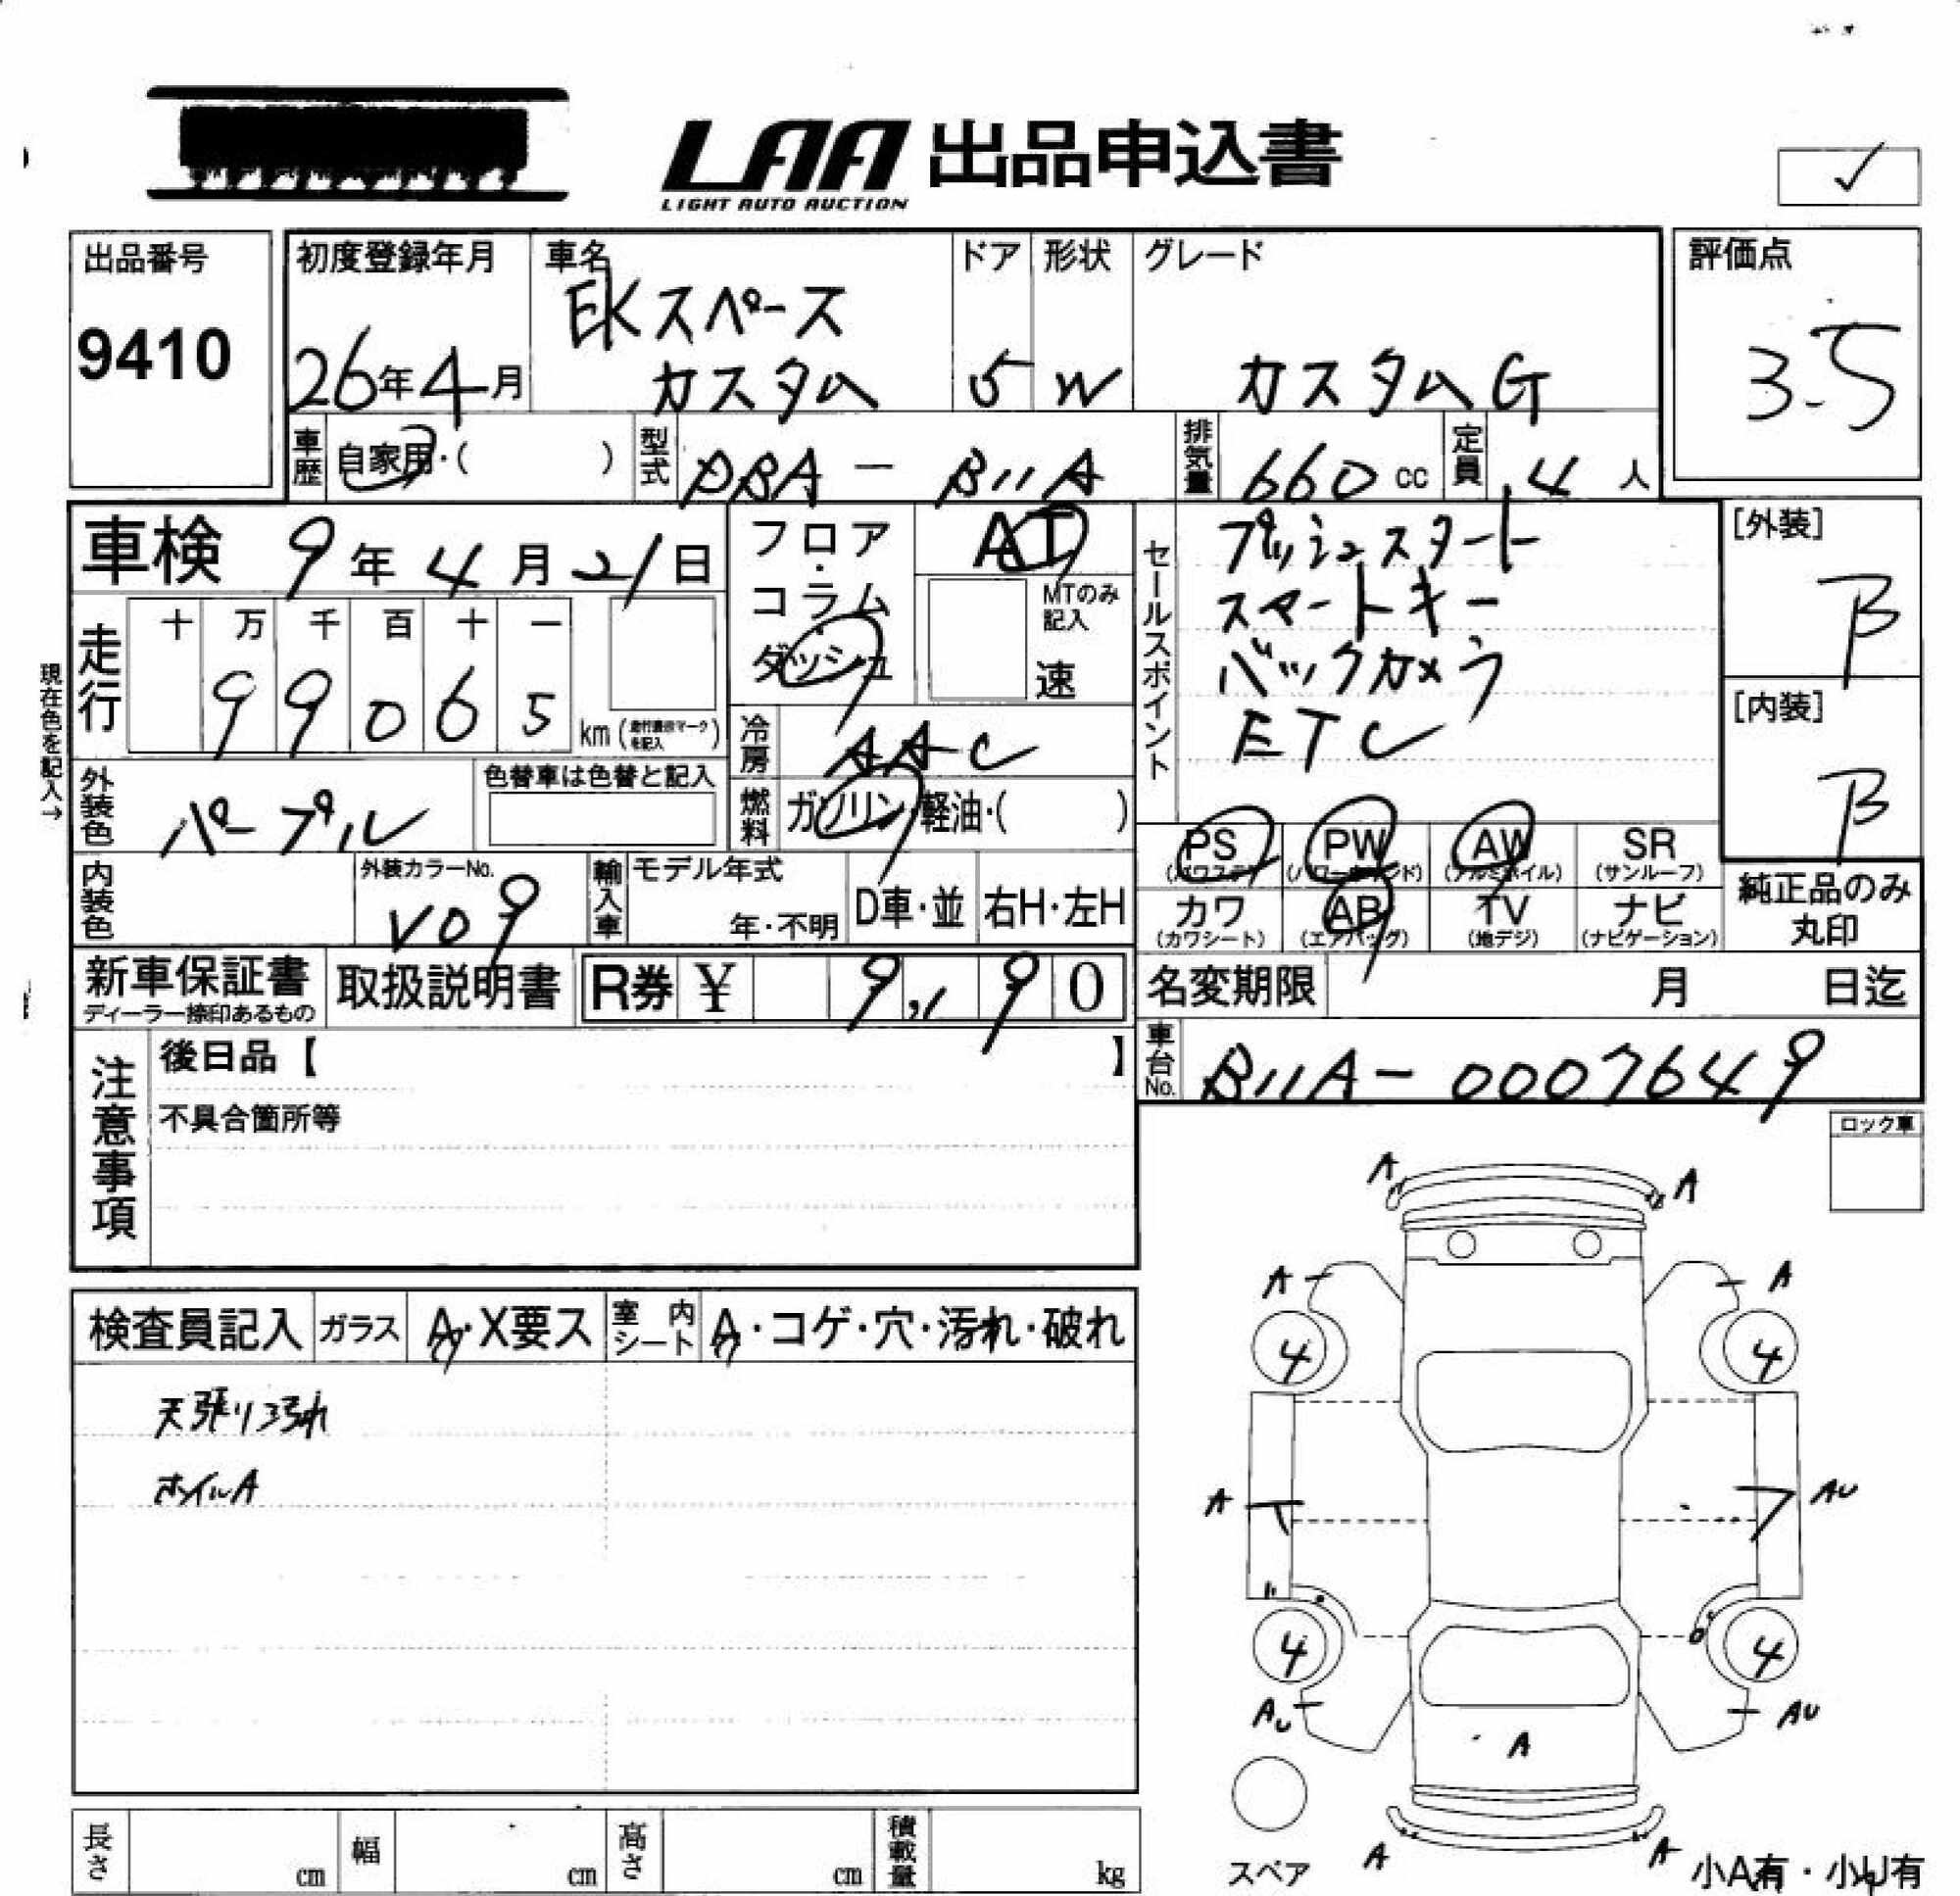 LAA 出品申込書
LIGHT AUTO AUCTION
✓
出品番号
9410
初度登録年月
26年4月
車名
EKスペース
カスタム
ドア
5
形状
W
グレード
カスタムG
評価点
3.5
車歴
自家用・( )
型式
DBA-B11A
排気量
660 cc
定員
4人
車検 9年4月21日
フロア・コラム・ダッシュ
AT
MTのみ記入
速
セールスポイント
プッシュスタート
スマートキー
バックカメラ
ETC
[外装]
B
[内装]
B
現在色を記入→
走行
十万千百十一
99065 km(走行書換マークを記入)
冷房
AAC
外装色
パープル
色替車は色替と記入
燃料
ガソリン・軽油・( )
PS PW AW SR
(パワステ) (パワーウインド) (アルミホイル) (サンルーフ)
カワ AB TV ナビ
(カワシート) (エアバッグ) (地デジ) (ナビゲーション)
純正品のみ
丸印
内装色
外装カラーNo.
V09
輸入車
モデル年式
年・不明
D車・並
右H・左H
新車保証書
ディーラー捺印あるもの
取扱説明書
R券 ¥ 9,190
名変期限 月 日迄
車台No.
B11A-0007649
注意事項
後日品【 】
不具合箇所等
ロック車
検査員記入
ガラス
A・X要ス
室内シート
A・コゲ・穴・汚れ・破れ
天張り汚れ
ホイルA
A A
A A
4 4
A AU
4 4
AU AU
A
スペア
A A
小A有・小U有
長さ cm
幅 cm
高さ cm
積載量 kg